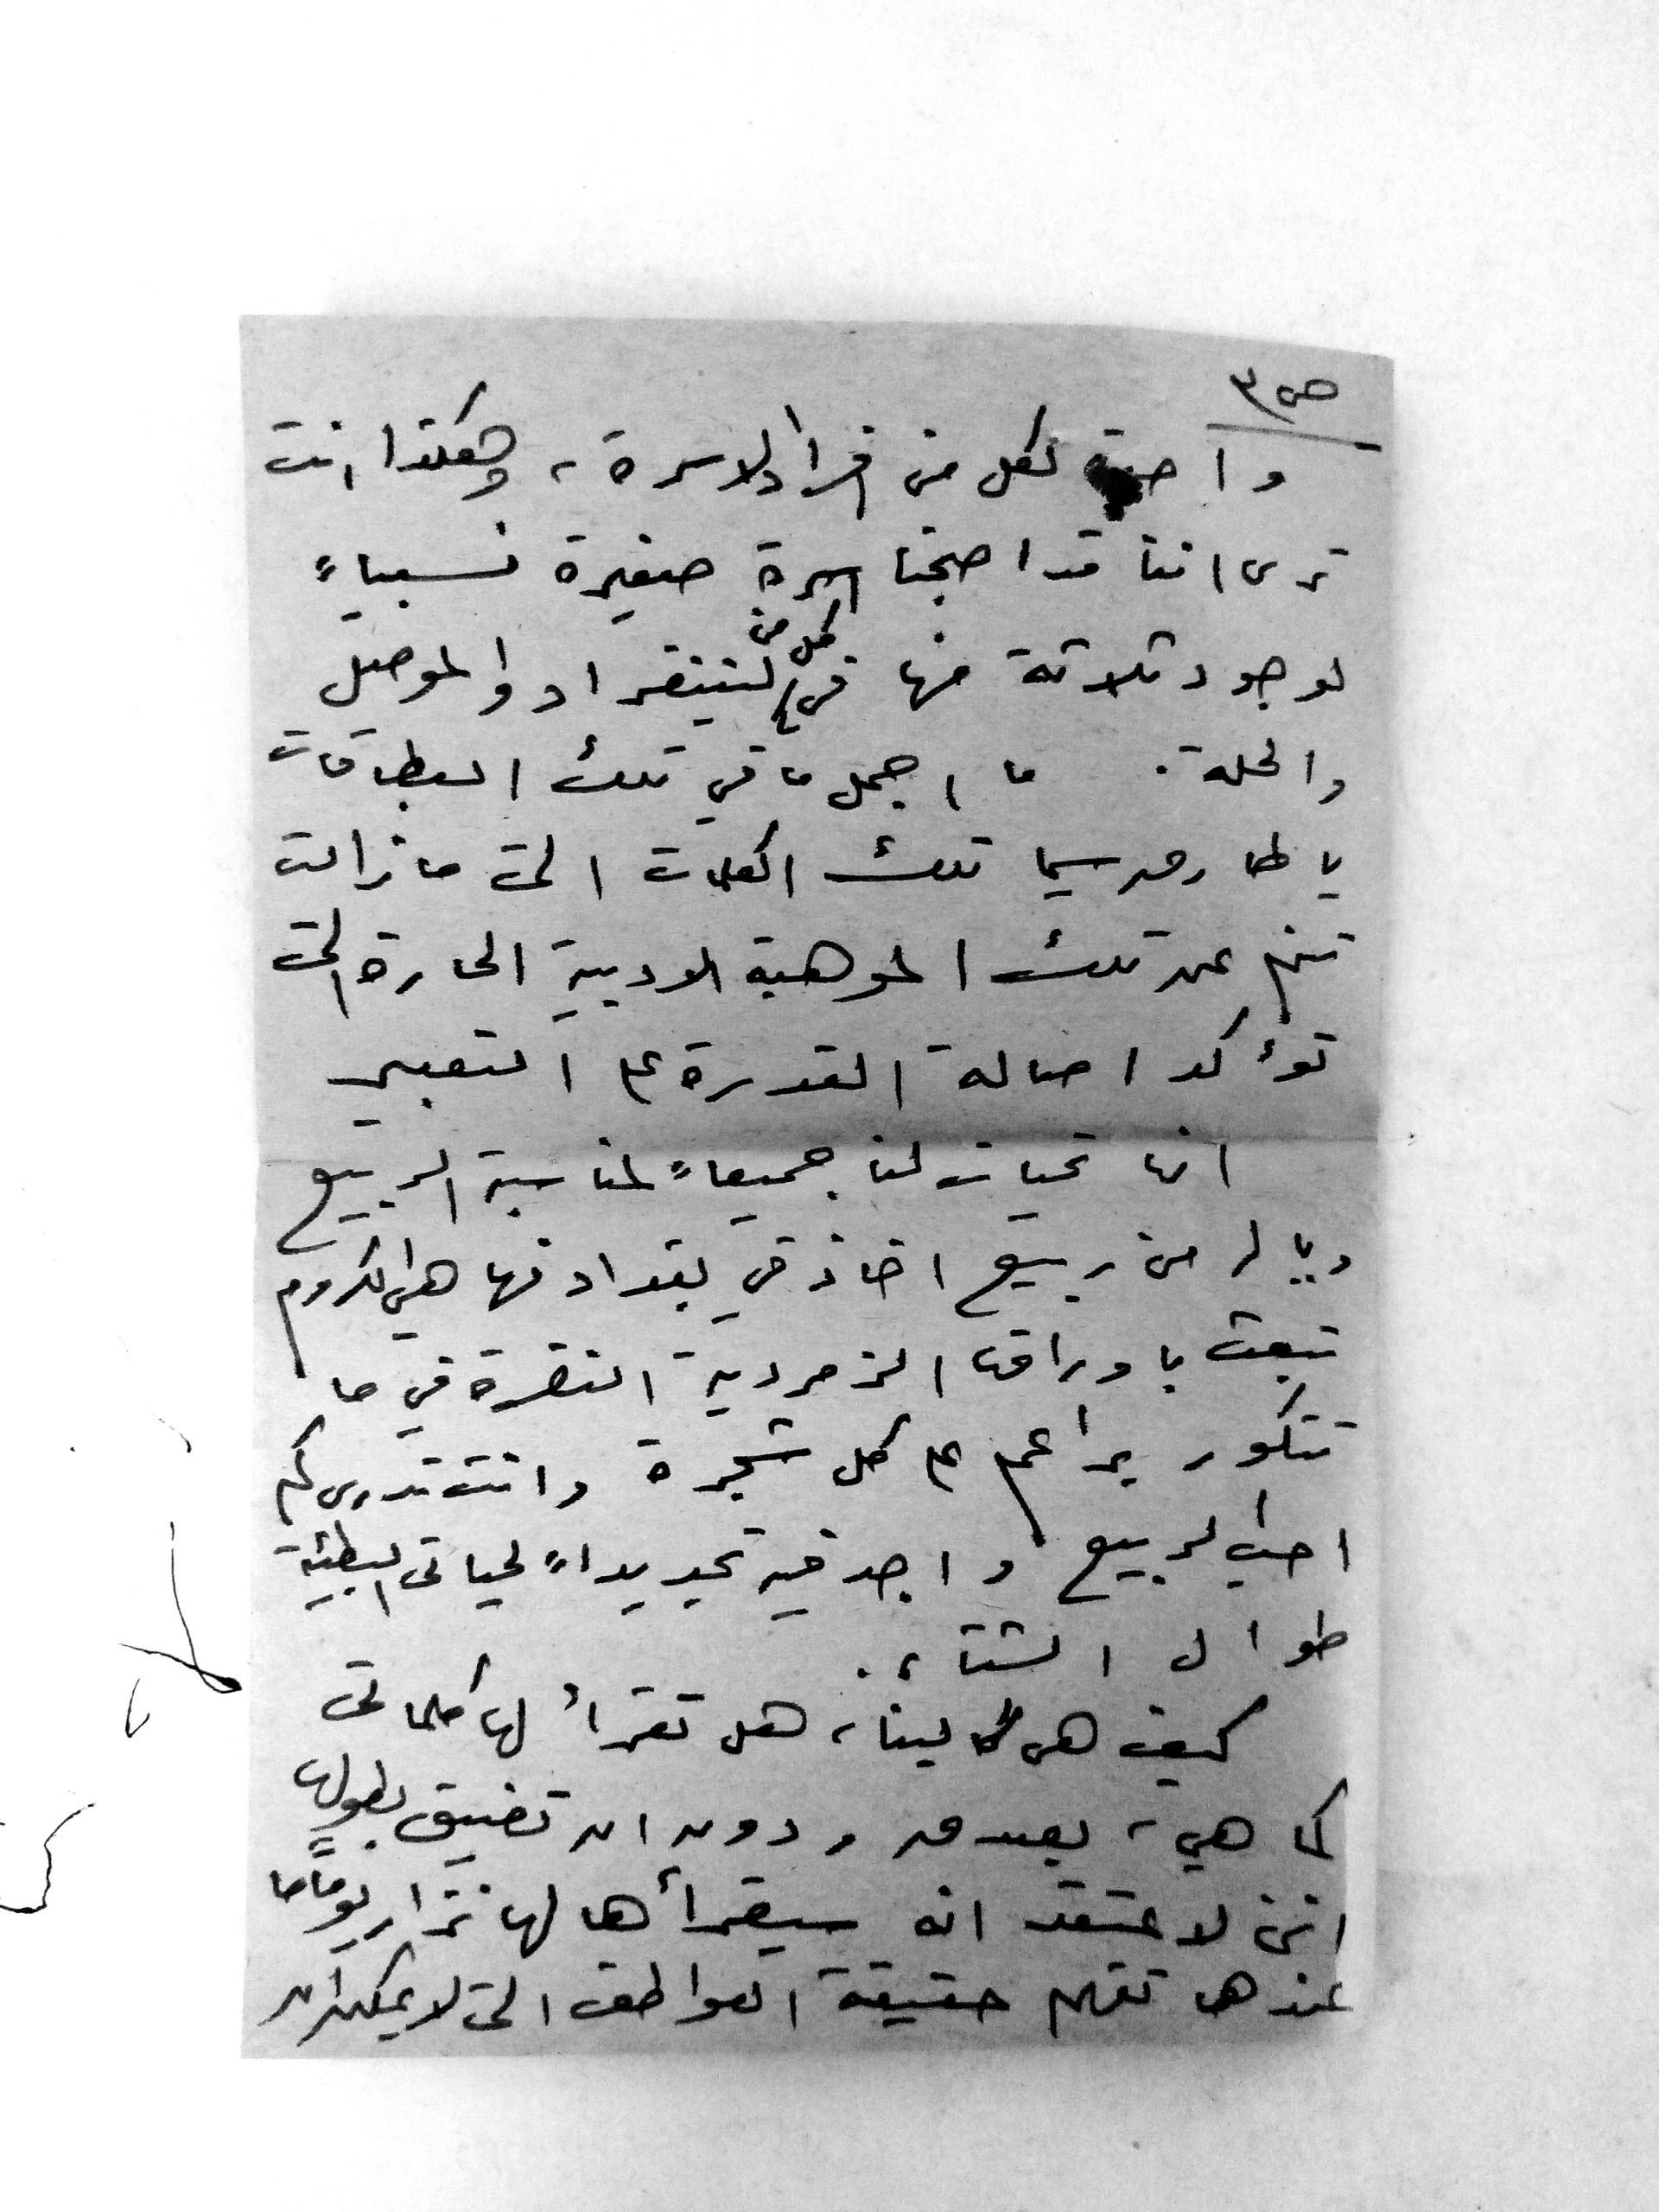 ص٣
واحدة لكل من افراد الاسرة ، وهكذا انت
ترى اننا قد اصبحنا اسرة صغيرة نسبياً
لوجود ثلاثة منها في كل من لنينغراد والموصل
والحلة . ما اجمل ما في تلك البطاقات
يا طارق سيما تلك الكلمات التي مازالت
تنم عن تلك الموهبة الادبية الحارة التي
تؤكد اصالة القدرة على التعبير
انها تحيات لنا جميعاً لمناسبة الربيع
ويا له من ربيع اخاذ في بغداد فها هي الكروم
تبعث باوراقها الزمردية النضرة في ما
تتكور براعم على كل شجرة وانت تدري كم
احب الربيع واجد فيه تجديداً لحياتي البطيئة
طوال الشتاء .
كيف هي لينا ، هل تقرأ لها كلماتي
كما هي ، بصدق ودون ان تضيق بطولها
انني لا اعتقد انه سيقرأها لها نزار يوماً ما
عندها تفهم حقيقة العواطف التي لا يمكن ان